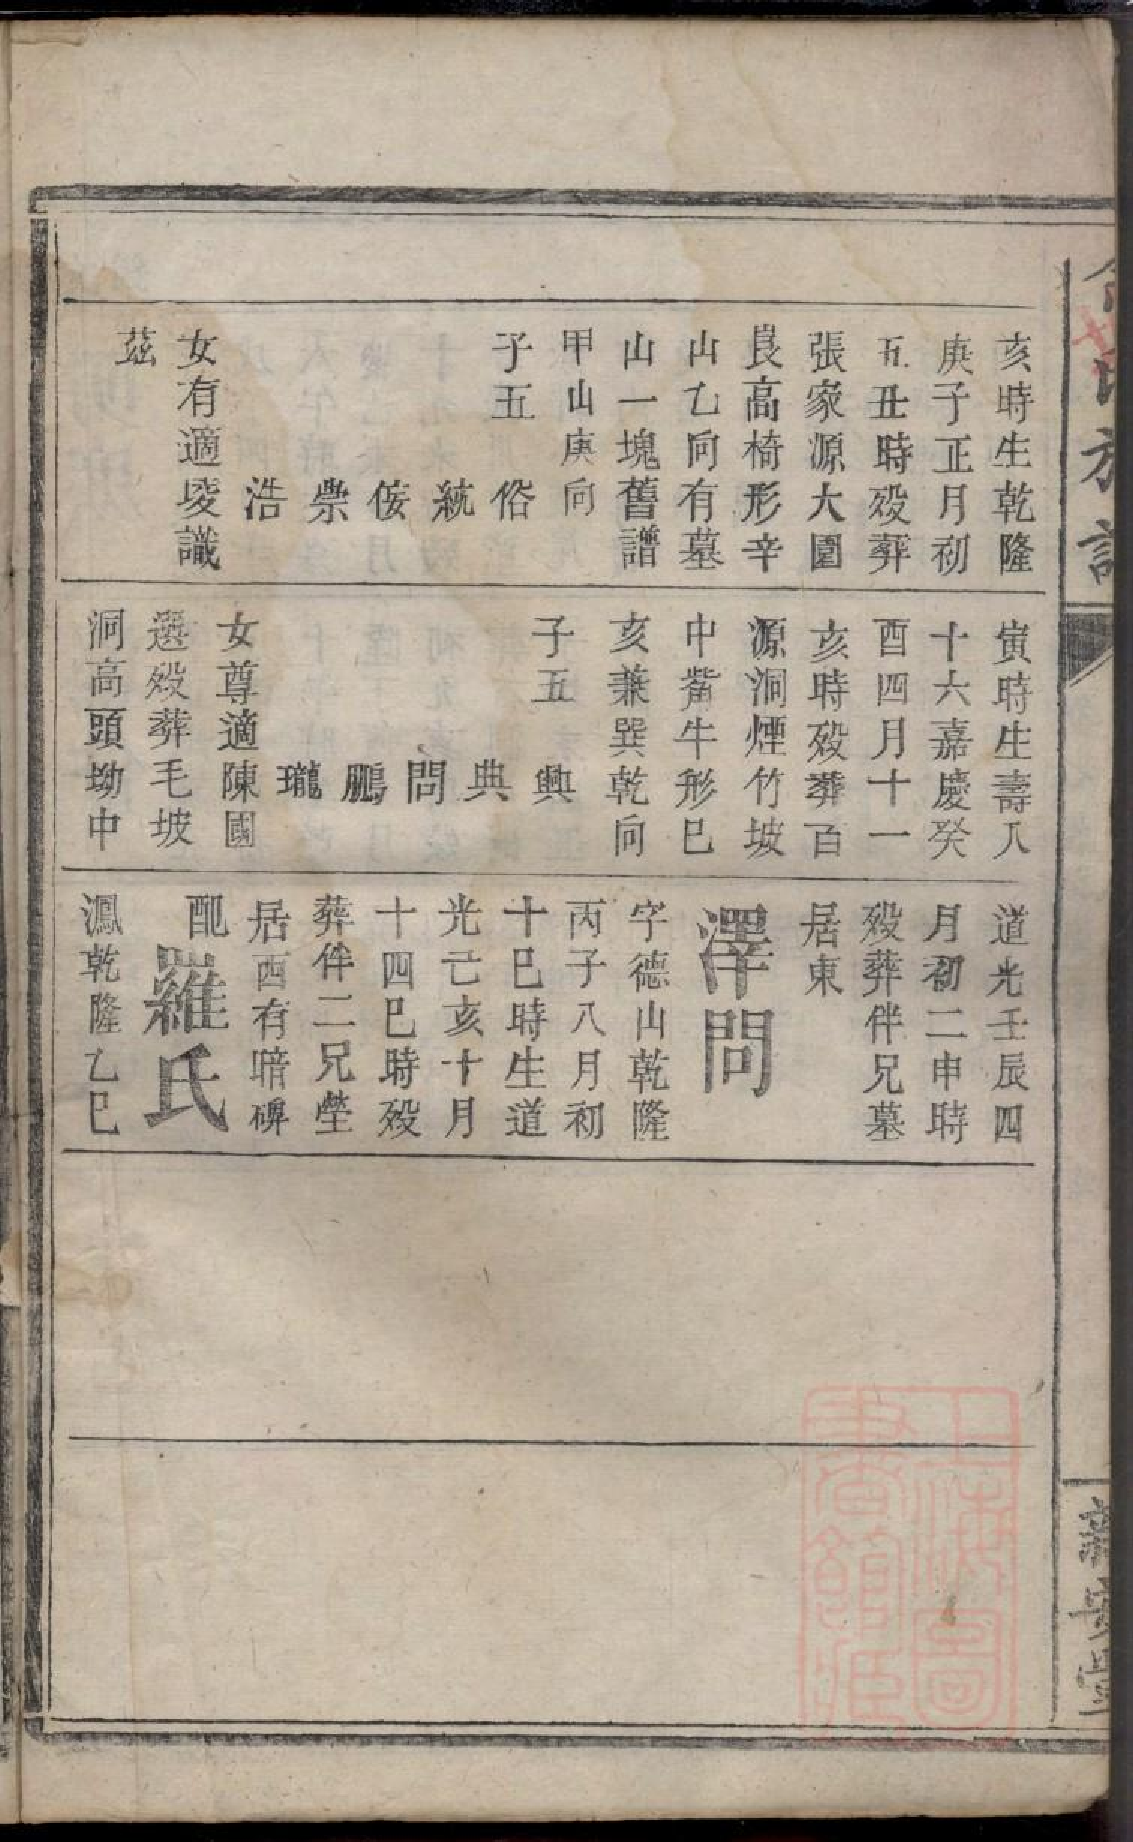 亥時生乾隆
庚子正月初
五丑時殁葬
張家源大園
艮高椅形辛
山乙向有墓
山一塊舊譜
甲山庚向
子五
俗
統
侒
崇
浩
女有適

識
茲
寅時生壽八
十六嘉慶癸
酉四月十一
亥時殁葬百
源洞煙竹坡
中觜牛形巳
亥兼巽乾向
子五
興
典
問
鵬
瓏
女尊適陳國
選殁葬毛坡
洞高頭坳中
道光壬辰四
月初二申時
殁葬伴兄墓
居東
澤問
字德山乾隆
丙子八月初
十巳時生道
光己亥十月
十四巳時殁
葬伴二兄塋
居西有暗碑
配羅氏
鳳乾隆乙巳
氏族譜
新安堂
上海圖書館藏